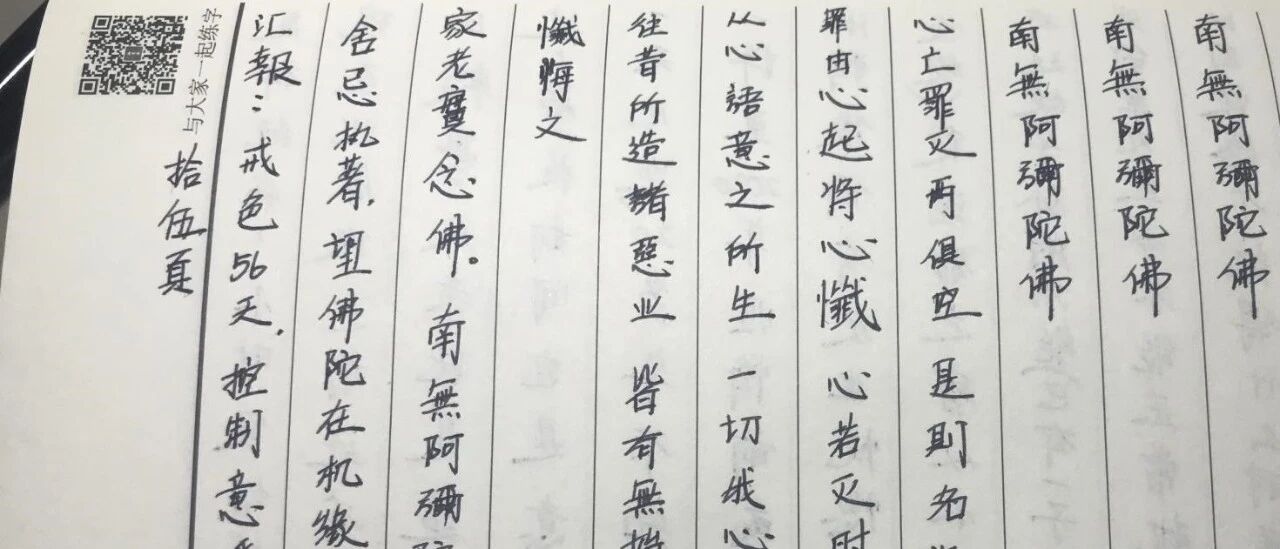 与大家一起练字
拾伍頁
汇报：戒色56天，控制意
舍忌执著，望佛陀在机緣
家老實念佛。南無阿彌陀
懺悔文
往昔所造诸惡业 皆有無
从心語意之所生 一切我心
罪由心起将心懺 心若灭时
心亡罪灭两俱空 是则名
南無阿彌陀佛
南無阿彌陀佛
南無阿彌陀佛